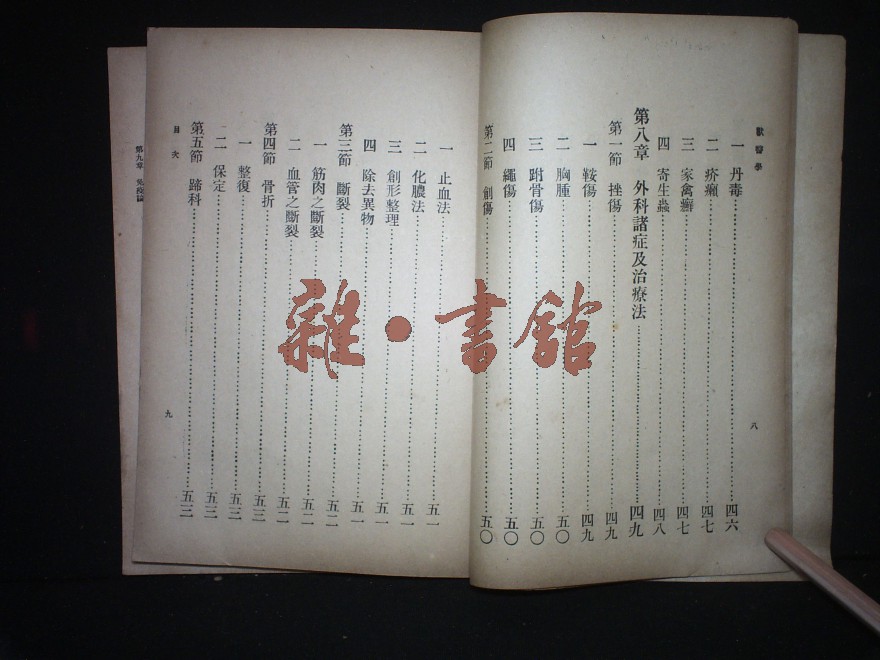 獸醫學
一 丹毒……四六
二 疥癩……四七
三 家禽癬……四七
四 寄生蟲……四八
第八章 外科諸症及治療法……四九
第一節 挫傷……四九
一 鞍傷……四九
二 胸腫……五〇
三 跗骨傷……五〇
四 繩傷……五〇
第二節 創傷……五〇
八
一 止血法……五一
二 化膿法……五一
三 創形整理……五一
四 除去異物……五一
第三節 斷裂……五二
一 筋肉之斷裂……五二
二 血管之斷裂……五二
第四節 骨折……五三
一 整復……五三
二 保定……五三
第五節 蹄科……五三
目次
九
第九章 免疫論
雜·書館